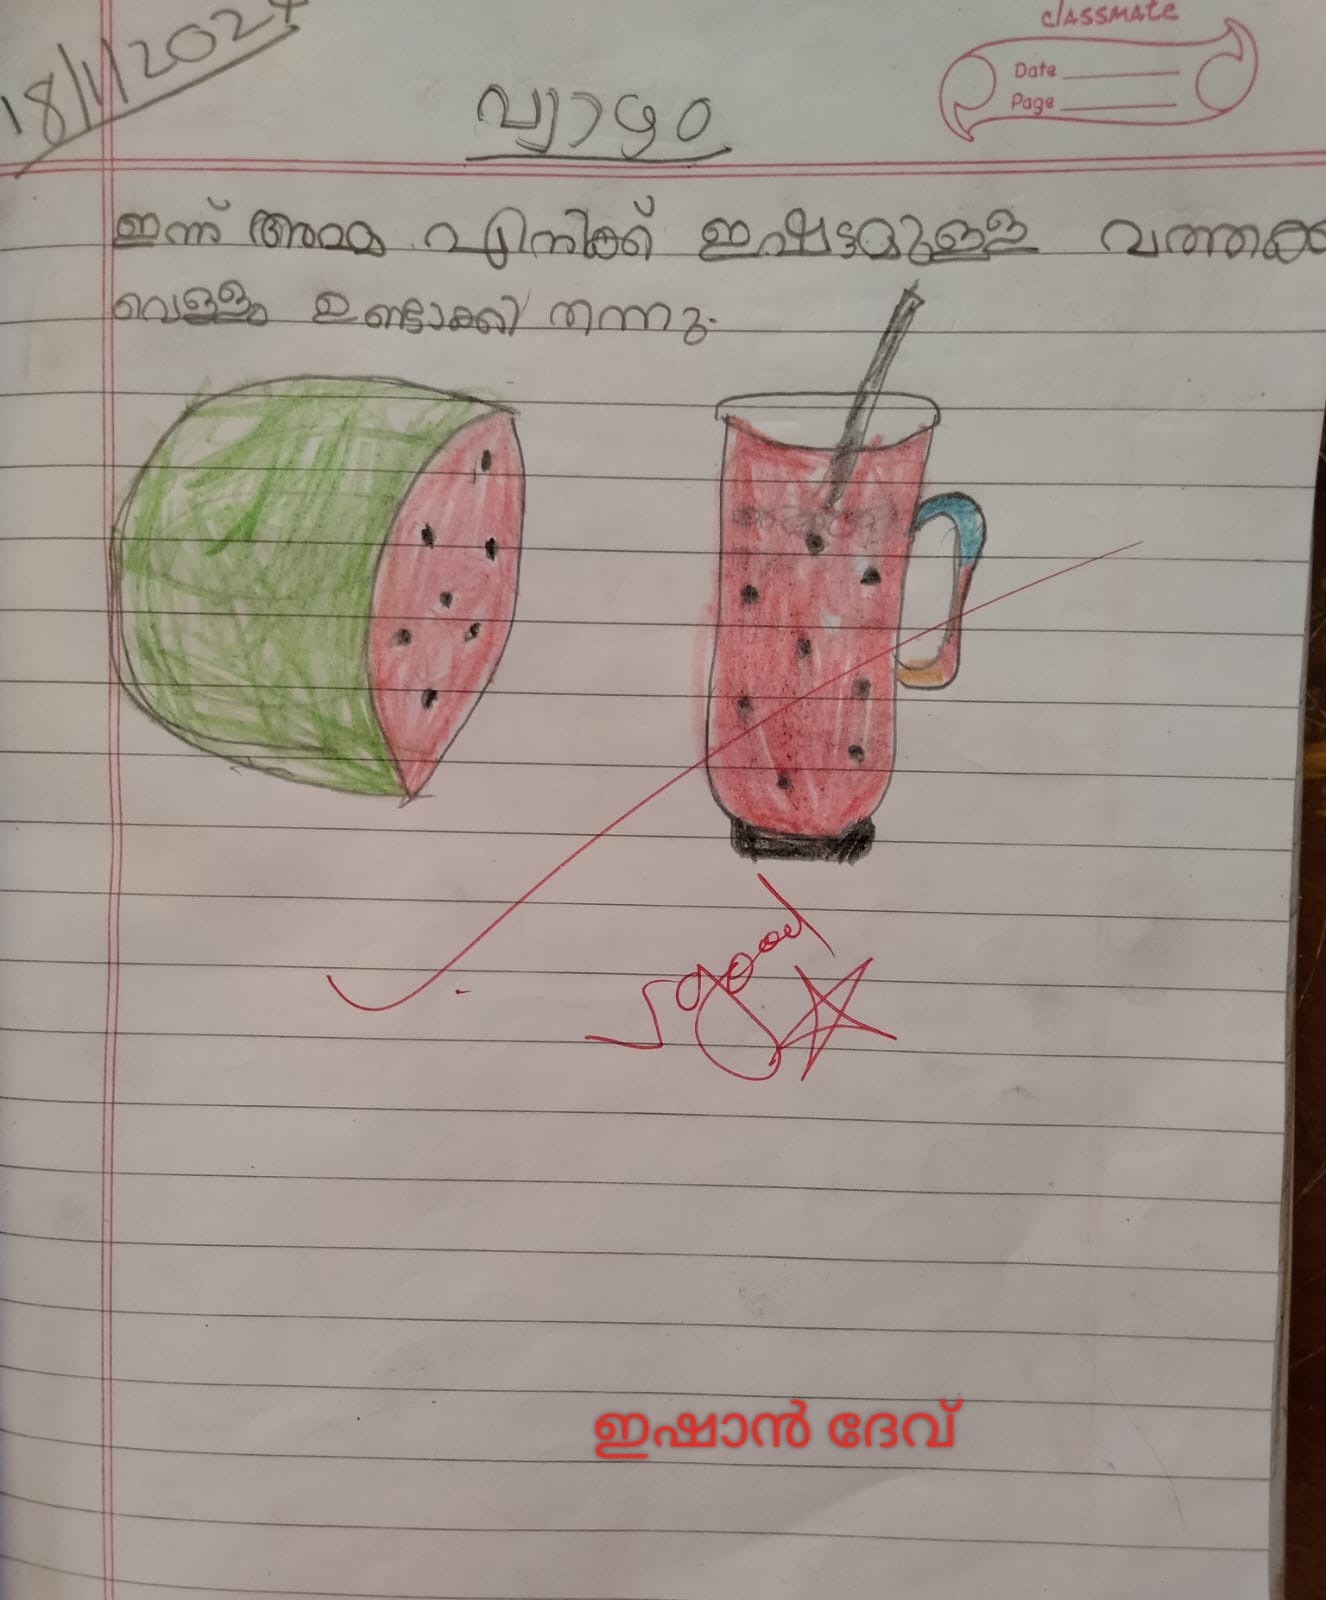 18/1/2024
classmate
Date
Page
വ്യാഴം
ഇന്ന് അമ്മ എനിക്ക് ഇഷ്ടമുള്ള വത്തക്ക
വെള്ളം ഉണ്ടാക്കി തന്നു.
good
ഇഷാൻ ദേവ്